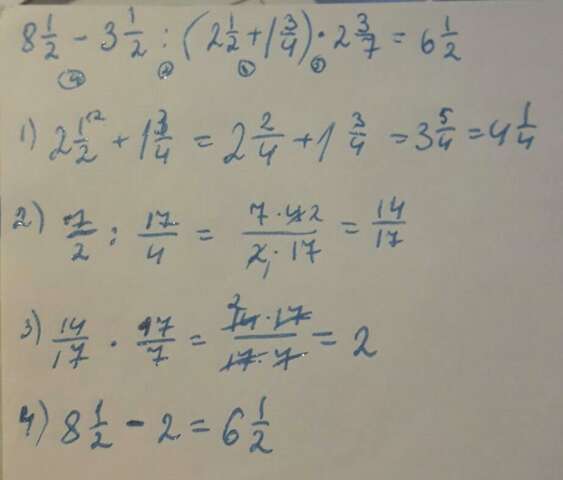 8 1/2 − 3 1/2 : (2 1/2 + 1 3/4) · 2 3/7 = 6 1/2
④ ② ① ③
1) 2 1/2 ·2 + 1 3/4 = 2 2/4 + 1 3/4 = 3 5/4 = 4 1/4
2) 7/2 : 17/4 = 7·4 2/2 1·17 = 14/17
3) 14/17 · 17/7 = 2 14·17/17·7 = 2
4) 8 1/2 − 2 = 6 1/2